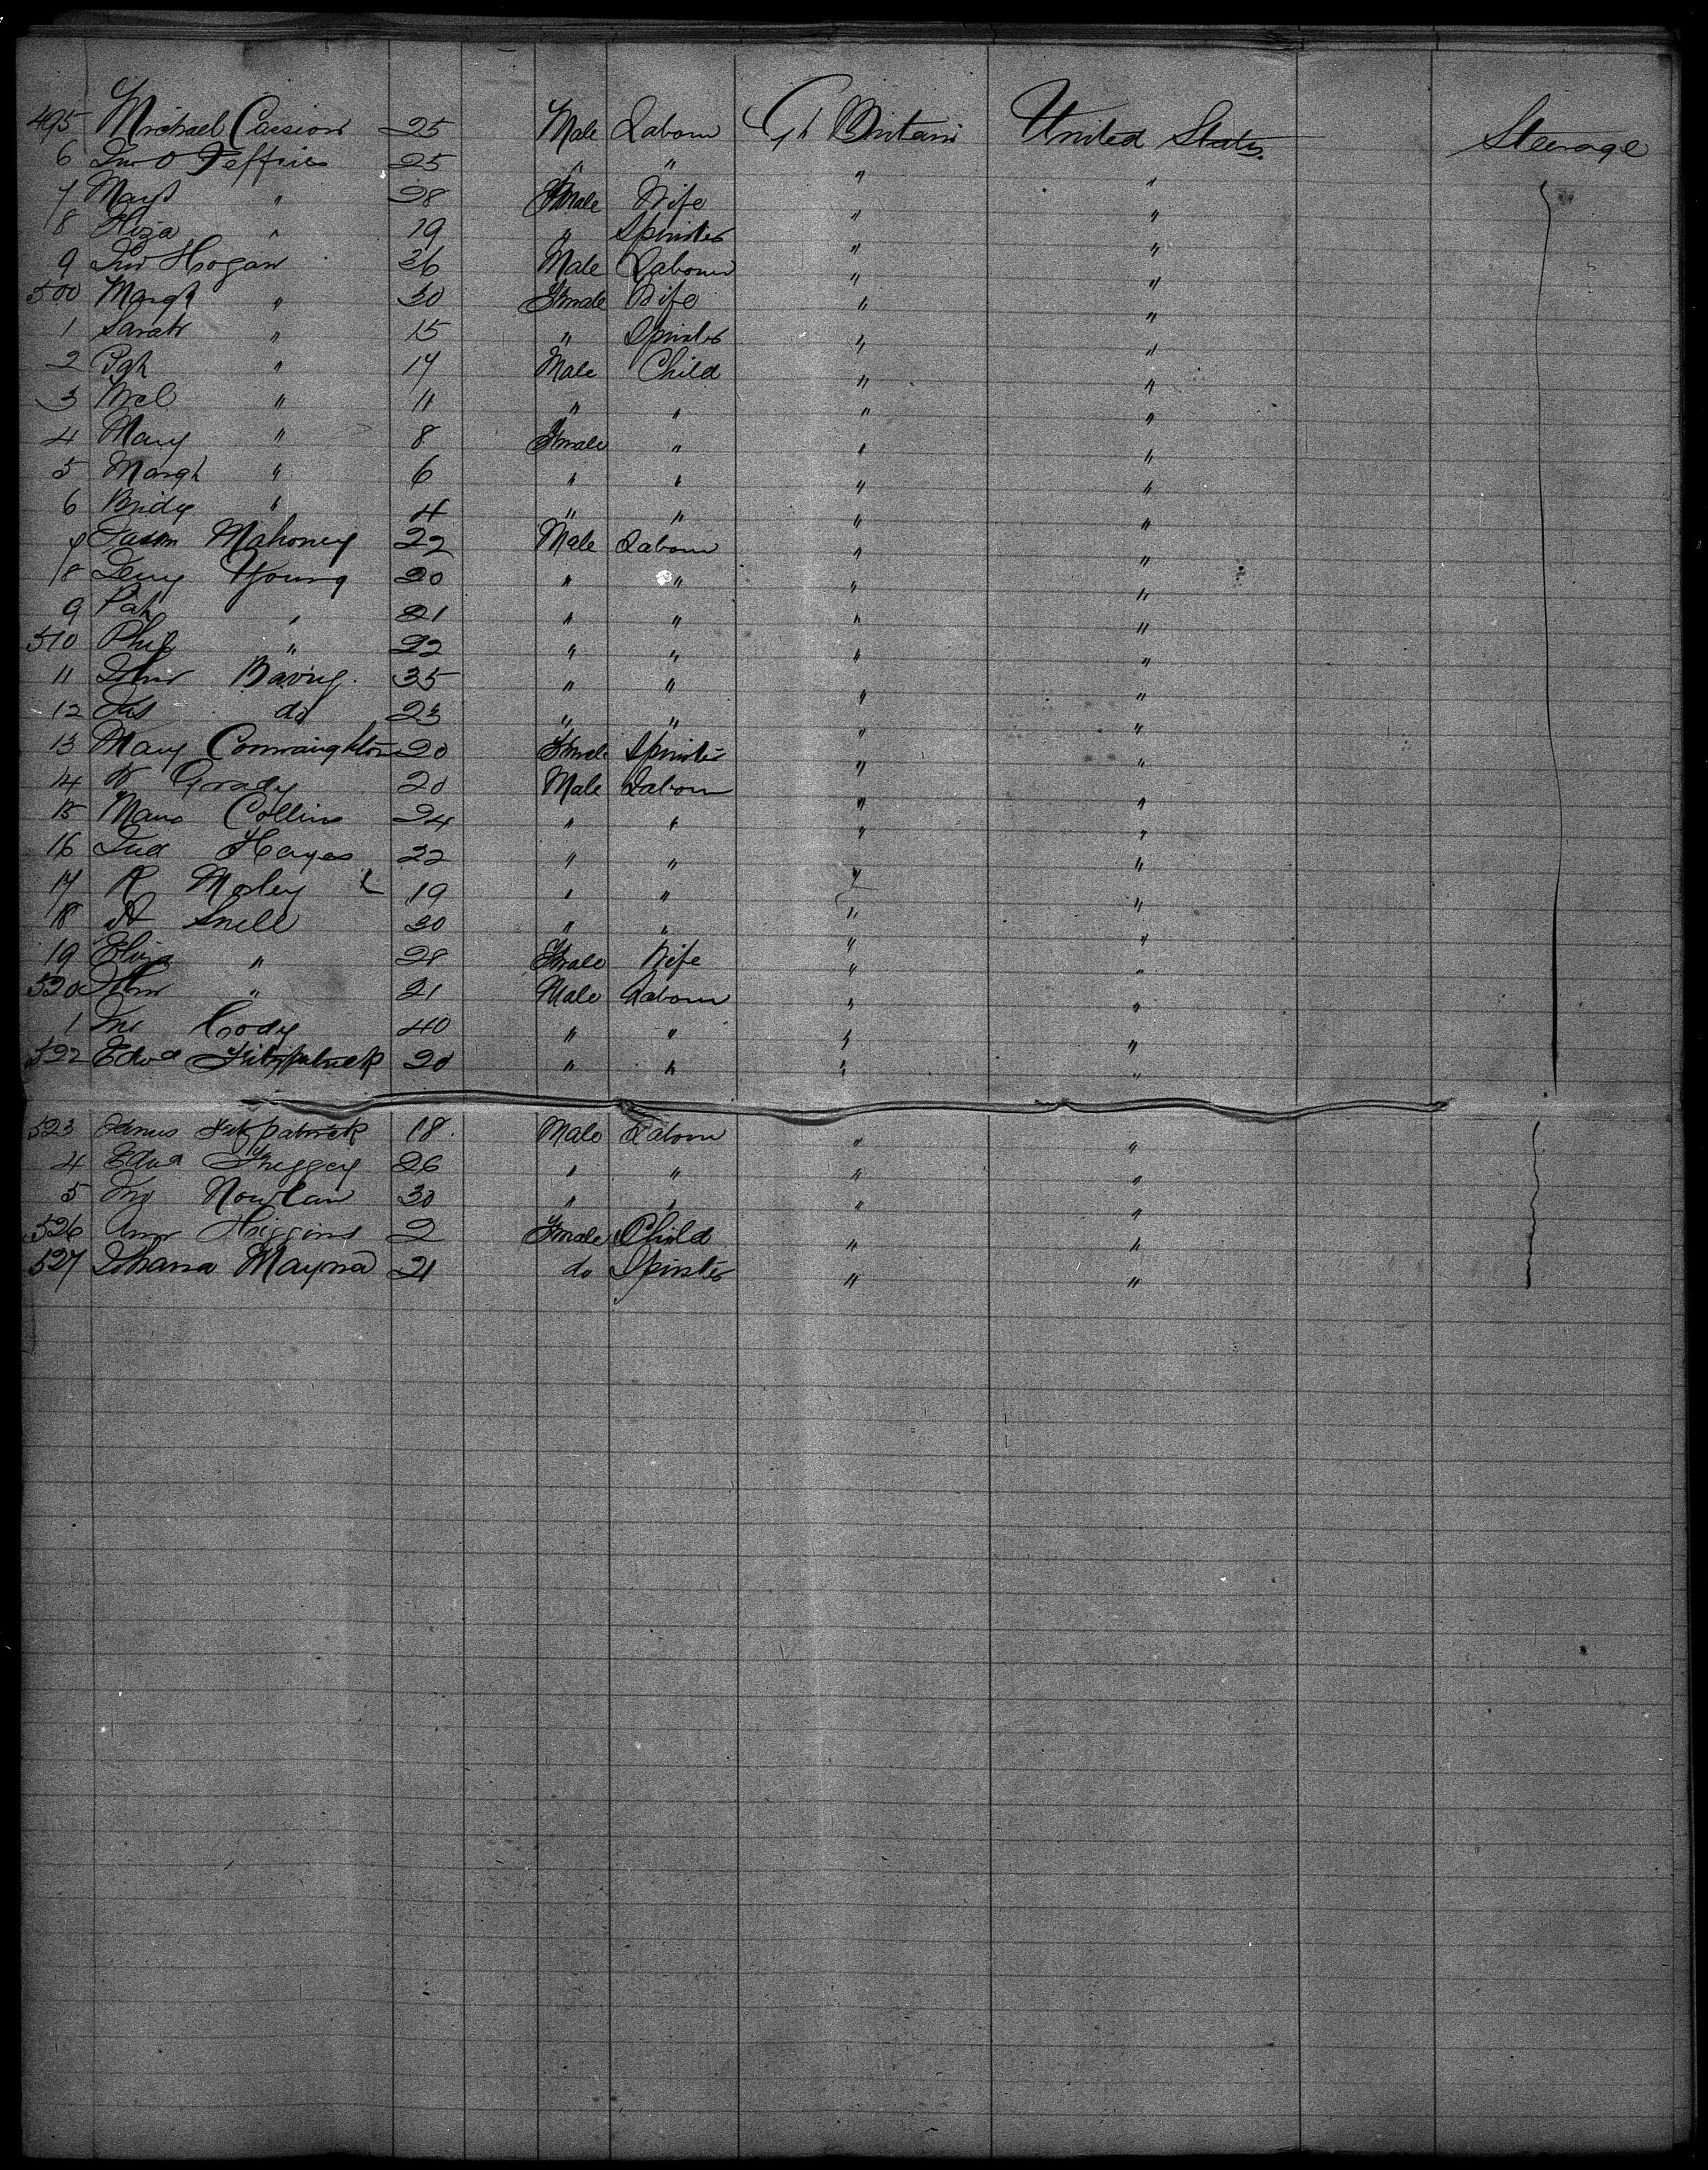 495 Michael Cassion 25 Male Labour Gt Britain United States. Steerage
6 Jno Jeffries 25 " " " "
7 Mary " 28 Female Wife " "
8 Eliza " 19 " Spinster " "
9 Jno Hogan 36 Male Labour " "
500 Margt " 30 Female Wife " "
1 Sarah " 15 " Spinster " "
2 Pat " 14 Male Child " "
3 Micl " 11 " " " "
4 Mary " 8 Female " " "
5 Margt " 6 " " " "
6 Bridy " 4 " " " "
7 Mahoney 22 Male Labour " "
8 Young 20 " " " "
9 Pat " 21 " " " "
510 Phil " 22 " " " "
11 John 35 " " " "
12 Jas do 23 " " " "
13 Mary Connaughton 20 Female Spinster " "
14 Grady 20 Male Labour " "
15 Collins 24 " " " "
16 Hayes 22 " " " "
17 R Morley 19 " " " "
18 Snell 30 " " " "
19 Eliza " 28 Female Wife " "
520 John " 21 Male Labour " "
1 Jno Cody 40 " " " "
522 Edwd Fitzpatrick 20 " " " "
523 Fitzpatrick 18. Male Labour " "
4 Edwd 26 " " " "
5 Jno Nowlan 30 " " " "
526 Ann Higgins 2 Female Child " "
527 Johana Mayna 21 do Spinster " "